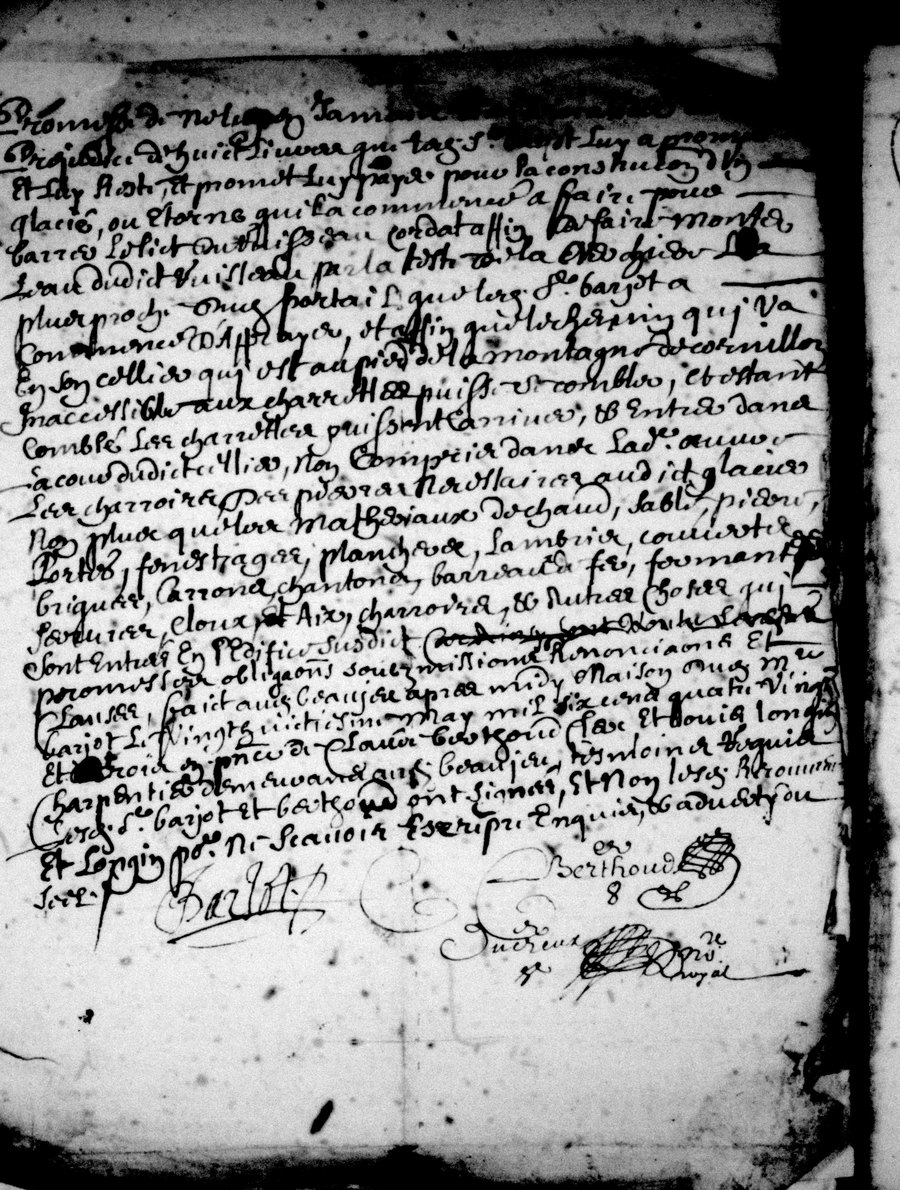 Promesse de
Prejudice de huict Livres que led. Sr. Barjot Luy a promis
Et Luy Reste, Et promet Luy payer pour la construction d'un
glacis, ou Eterne qui la commencé a faire pour
barrer Le lict du Ruisseau Cordat affin de faire monter
Leau dudict Ruisseau par la teste de la
plus proche du portail que led. Sr. barjot a
Commencé D'Apprayer, et affin que le chemin qui va
En son cellier qui est au pied de la montagne de cornillon
Inaccessible aux charrettes puisse se combler, et estant
Comblé Les charrettes puissent arriver, & Entrer dans
La cour dudict cellier, Non Compris dans Lad. œuvre
Les charroirs Des pierres Necessaires audict glacis
Non plus que les Matheriaux de chaud, sable, pierre,
Portes, fenestrages, planchers, Lambris, couverts
briques, Carrons, chantons, barreaux a fer, ferments
Serrures, Cloux et Aix, charroirs, & Autres Choses qui
Sont Entrés En l'Edifice susdict
promesses obligaons soubzmissions Renonciaons Et
Clauses, faict aud. beaujeu apres midy Maison dud. Mr
barjot Le Vingt huictiesme May mil six cens quatre Vingt
Et trois en pnce de Claude berthoud clerc Et Louis Longin
Charpentier demeurans aud. beaujeu, tesmoins Requis
Lesd. Sr. barjot Et berthoud ont signés, Et Non lesd.
Et Longin pr. Ne Scavoir Escripre Enquis, & adverty du
Scel.
Barjot
Berthoud
Ducreux
nore
royal